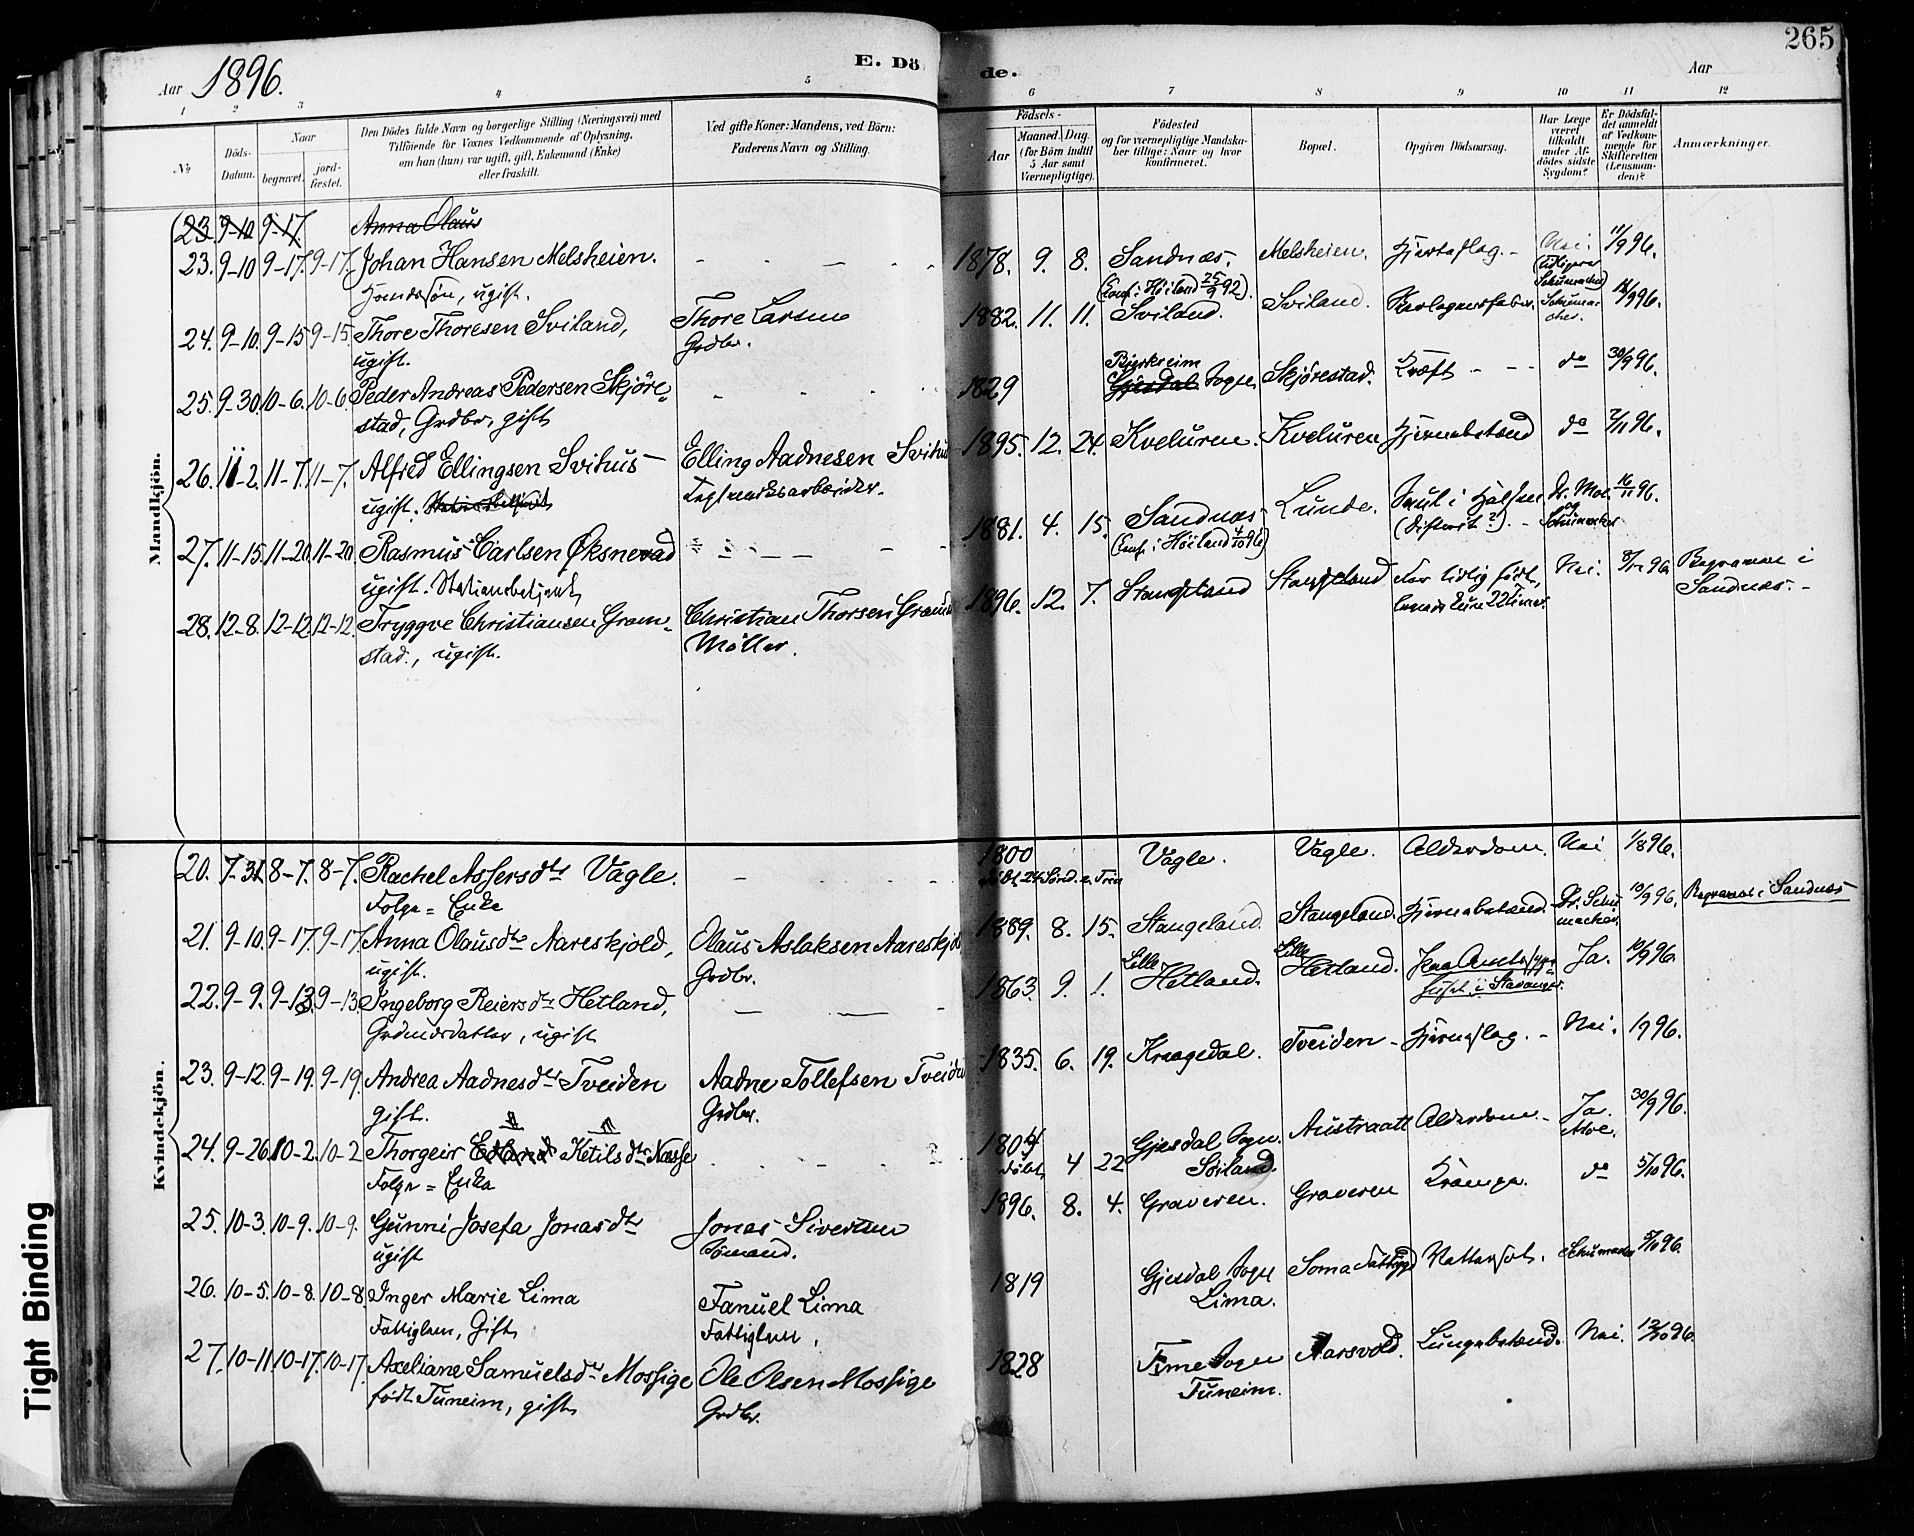 265
Aar 1896.
E. Dö de.
Aar
1 2 3 4 5 6 7 8 9 10 11 12
№
Döds-Datum.
Naar
begravet.
jord-fæstet.
Den Dödes fulde Navn og borgerlige Stilling (Næringsvei) med
Tilföiende for Voxnes Vedkommende af Oplysning,
om han (hun) var ugift, gift, Enkemand (Enke)
eller fraskilt.
Ved gifte Koner: Mandens, ved Börn:
Faderens Navn og Stilling.
Födsels-
Aar
Maaned. Dag.
(for Börn indtil
5 Aar samt
Værnepligtige).
Födested
og for værnepligtige Mandskaber tillige: Naar og hvor
konfirmeret.
Bopæl.
Opgiven Dödsaarsag.
Har Læge
været
tilkaldt
under Afdödes sidste
Sygdom?
Er Dödsfaldet anmeldt
af Vedkommende for
Skifteretten
(Lensmanden)?
Anmærkninger.
Mandkjön.
23. 9-10 9-17 Anna Olaus
23. 9-10 9-17. 9-17. Johan Hansen Melsheien. 1878. 9. 8. Sandnæs. Melsheien. Hjerteslag. Nei. 11/9 96.
ugift. (Conf. i Høiland 25/9 92). (tidligere Schumacher)
24. 9-10. 9-15 9-15. Thore Thoresen Sviland, Thore Larsen 1882. 11. 11. Sviland. Sviland. Skarlagensfeber. Schumacher. 12/9 96.
ugift. Grdbr.
25. 9-30 10-6. 10-6. Peder Andreas Pedersen Skjøre- 1829 Bjerkreim Gjesdal Sogn Skjørestad. Kræft do 30/9 96.
stad, Grdbr, gift
26. 11-2. 11-7. 11-7. Alfred Ellingsen Svihus Elling Aadnesen Svihus 1895. 12. 24. Kveluren. Kveluren Hjernebetænd do 7/11 96.
ugift.
27. 11-15. 11-20. 11-20. Rasmus Carlsen Øksnevad 1881. 4. 15. Sandnæs Lunde. Saul i Halsen Dr. Moe og Schumacher 16/11 96.
ugift. Stationsbetjent (Conf. i Høiland 4/10 96) (Difterit?).
28. 12-8. 12-12. 12-12. Tryggve Christiansen Gram- Christian Thorsen Gramst 1896. 12. 7. Stangeland Stangeland For tidlig født, Nei. 8/12 96. Begravet i
stad., ugift. Møller. levede kun 22 timer. Sandnæs.
Kvindekjön.
20. 7-31. 8-7. 8-7. Rachel Assersdtr Vagle. 1800 Vagle. Vagle. Alderdom. Nei 1/8 96.
Folge = Enke
21. 9-10. 9-17. 9-17. Anna Olausdtr Aareskjold, Olaus Aslaksen Aareskjold 1889. 8. 15. Stangeland. Stangeland. Hjernebetænd. Dr. Schumacher 10/9 96. Begravet i Sandnæs
ugift. Grdbr.
22. 9-9. 9-13. 9-13. Ingeborg Reiersdtr Hetland, 1863. 9. 1. Lille Hetland. Lille Hetland. Ja. 10/9 96.
Grdmdsdatter, ugift i Stavanger.
23. 9-12. 9-19. 9-19. Andrea Aadnesdtr Tveiden Aadne Tollefsen Tveiden 1835. 6. 19. Kragedal. Tveiden Hjerneslag. Nei. 96.
gift. Grdbr.
24. 9-26. 10-2. 10-2 Thorgeir Ketilsdtr Næsse 1804 døbt 4 22 Gjesdal Sogn. Søiland. Austraatt Alderdom. Ja. Moe. 30/9 96.
Folge = Enke
25. 10-3. 10-9. 10-9. Gunni Josefa Jonasdtr Jonas Sivertsen 1896. 8. 4. Graveren. Graveren Krampe. do 5/10 96.
ugift Sømand.
26. 10-5. 10-8. 10-8. Inger Marie Lima Fanuel Lima 1819 Gjesdal Sogn Soma Fattiggd Vattersot. Schumacher 5/10 96.
Fattiglem, Gift Fattiglem, Lima.
27. 10-11. 10-17. 10-17. Axeliane Samuelsdtr Mossige Ole Olsen Mossige 1828 Time Sogn Aarsvold. Lungebetænd. Nei. 12/10 96.
født Tuneim, gift Grdbr. Tuneim.
Tight Binding